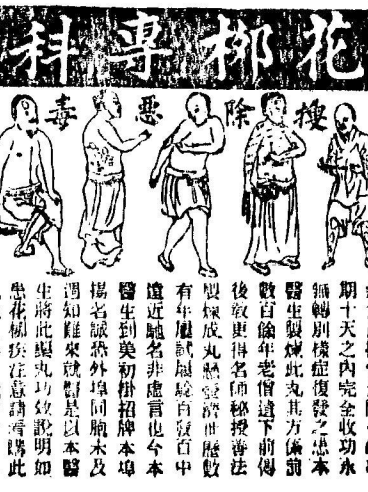 花柳專科
搜除惡毒
期十天之内完全收功永
無轉別樣症復發之患本
醫生製煉此丸其方係前
數百餘年老僧遺下前傳
後教更得名師秘授善法
製煉成丸懸壺濟世歷數
有年屢試屢驗百發百中
遠近馳名非虛言也今本
醫生到美初掛招牌本埠
揚名誠恐外埠同胞未及
週知難來就醫是以本醫
生將此藥丸功效說明如
患花柳疾注意請看購此